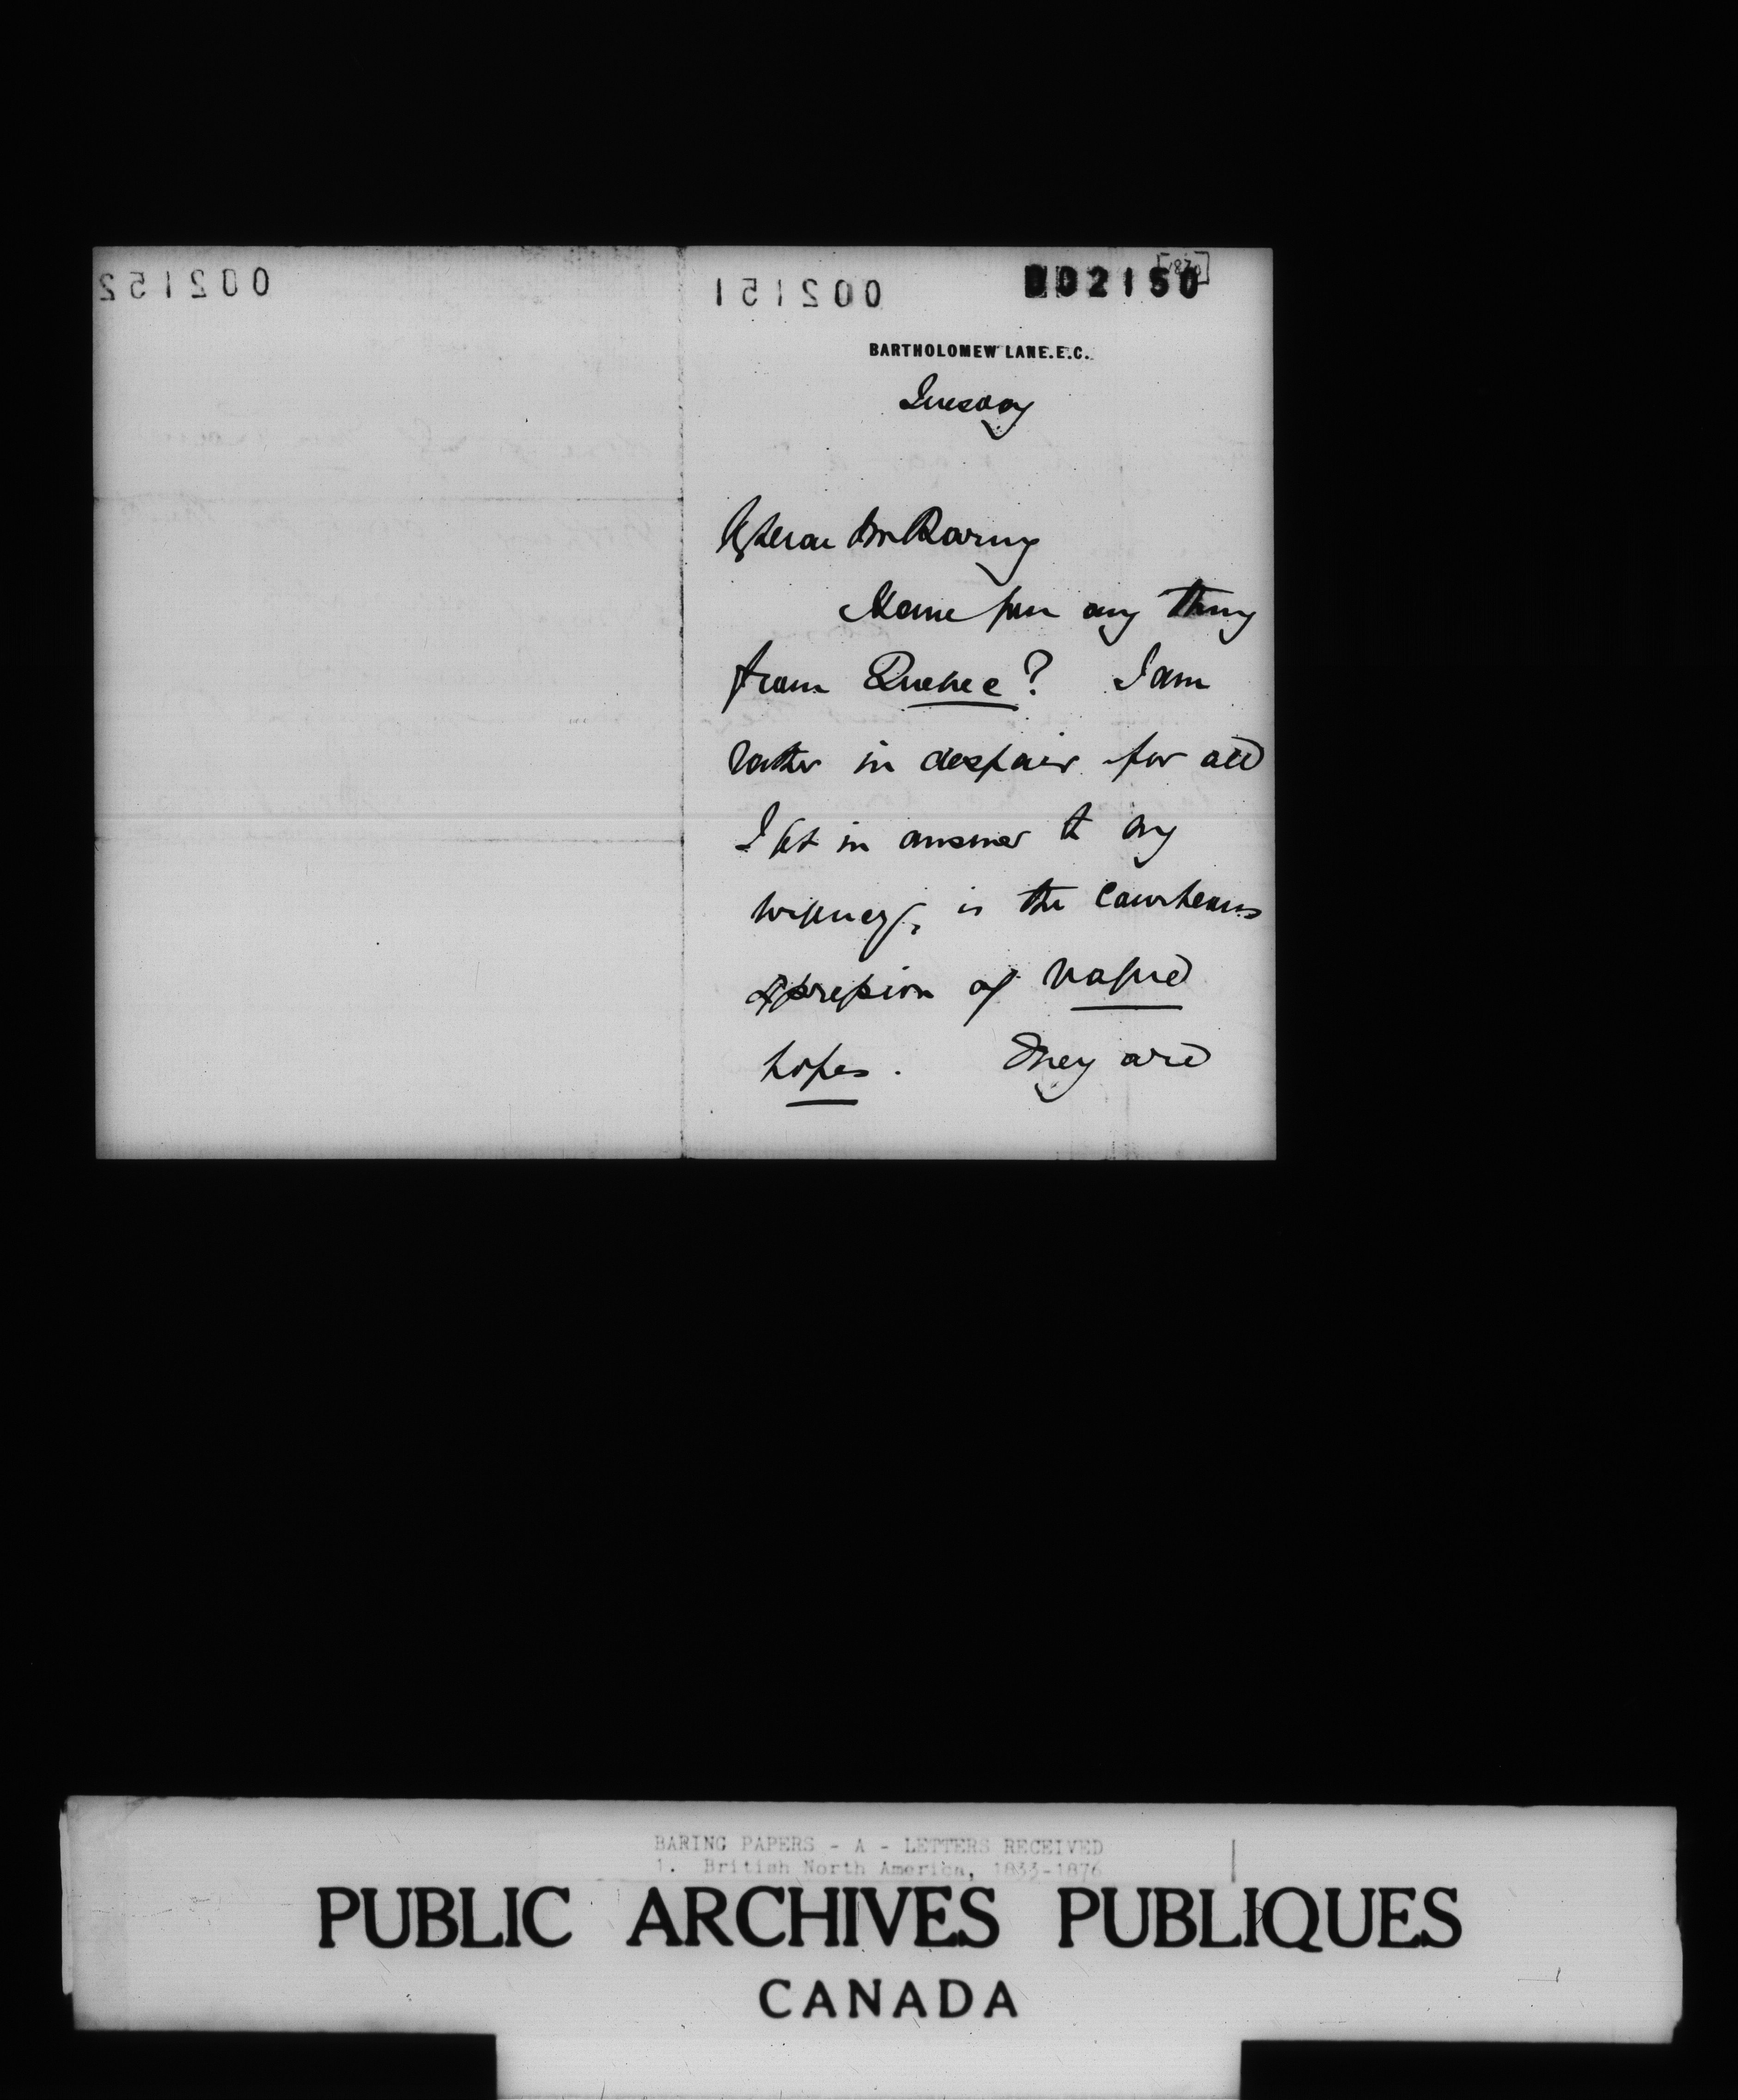 002152
002151
002150
[1870]
BARTHOLOMEW LANE. E.C.
Tuesday
My dear Mr Baring
Have you any thing
from Quebec? I am
rather in despair for all
I get in answer to my
is the courteous
expression of vague
hopes. They are
BARING PAPERS - A - LETTERS RECEIVED
1. British North America, 1833-1876
PUBLIC ARCHIVES PUBLIQUES
CANADA